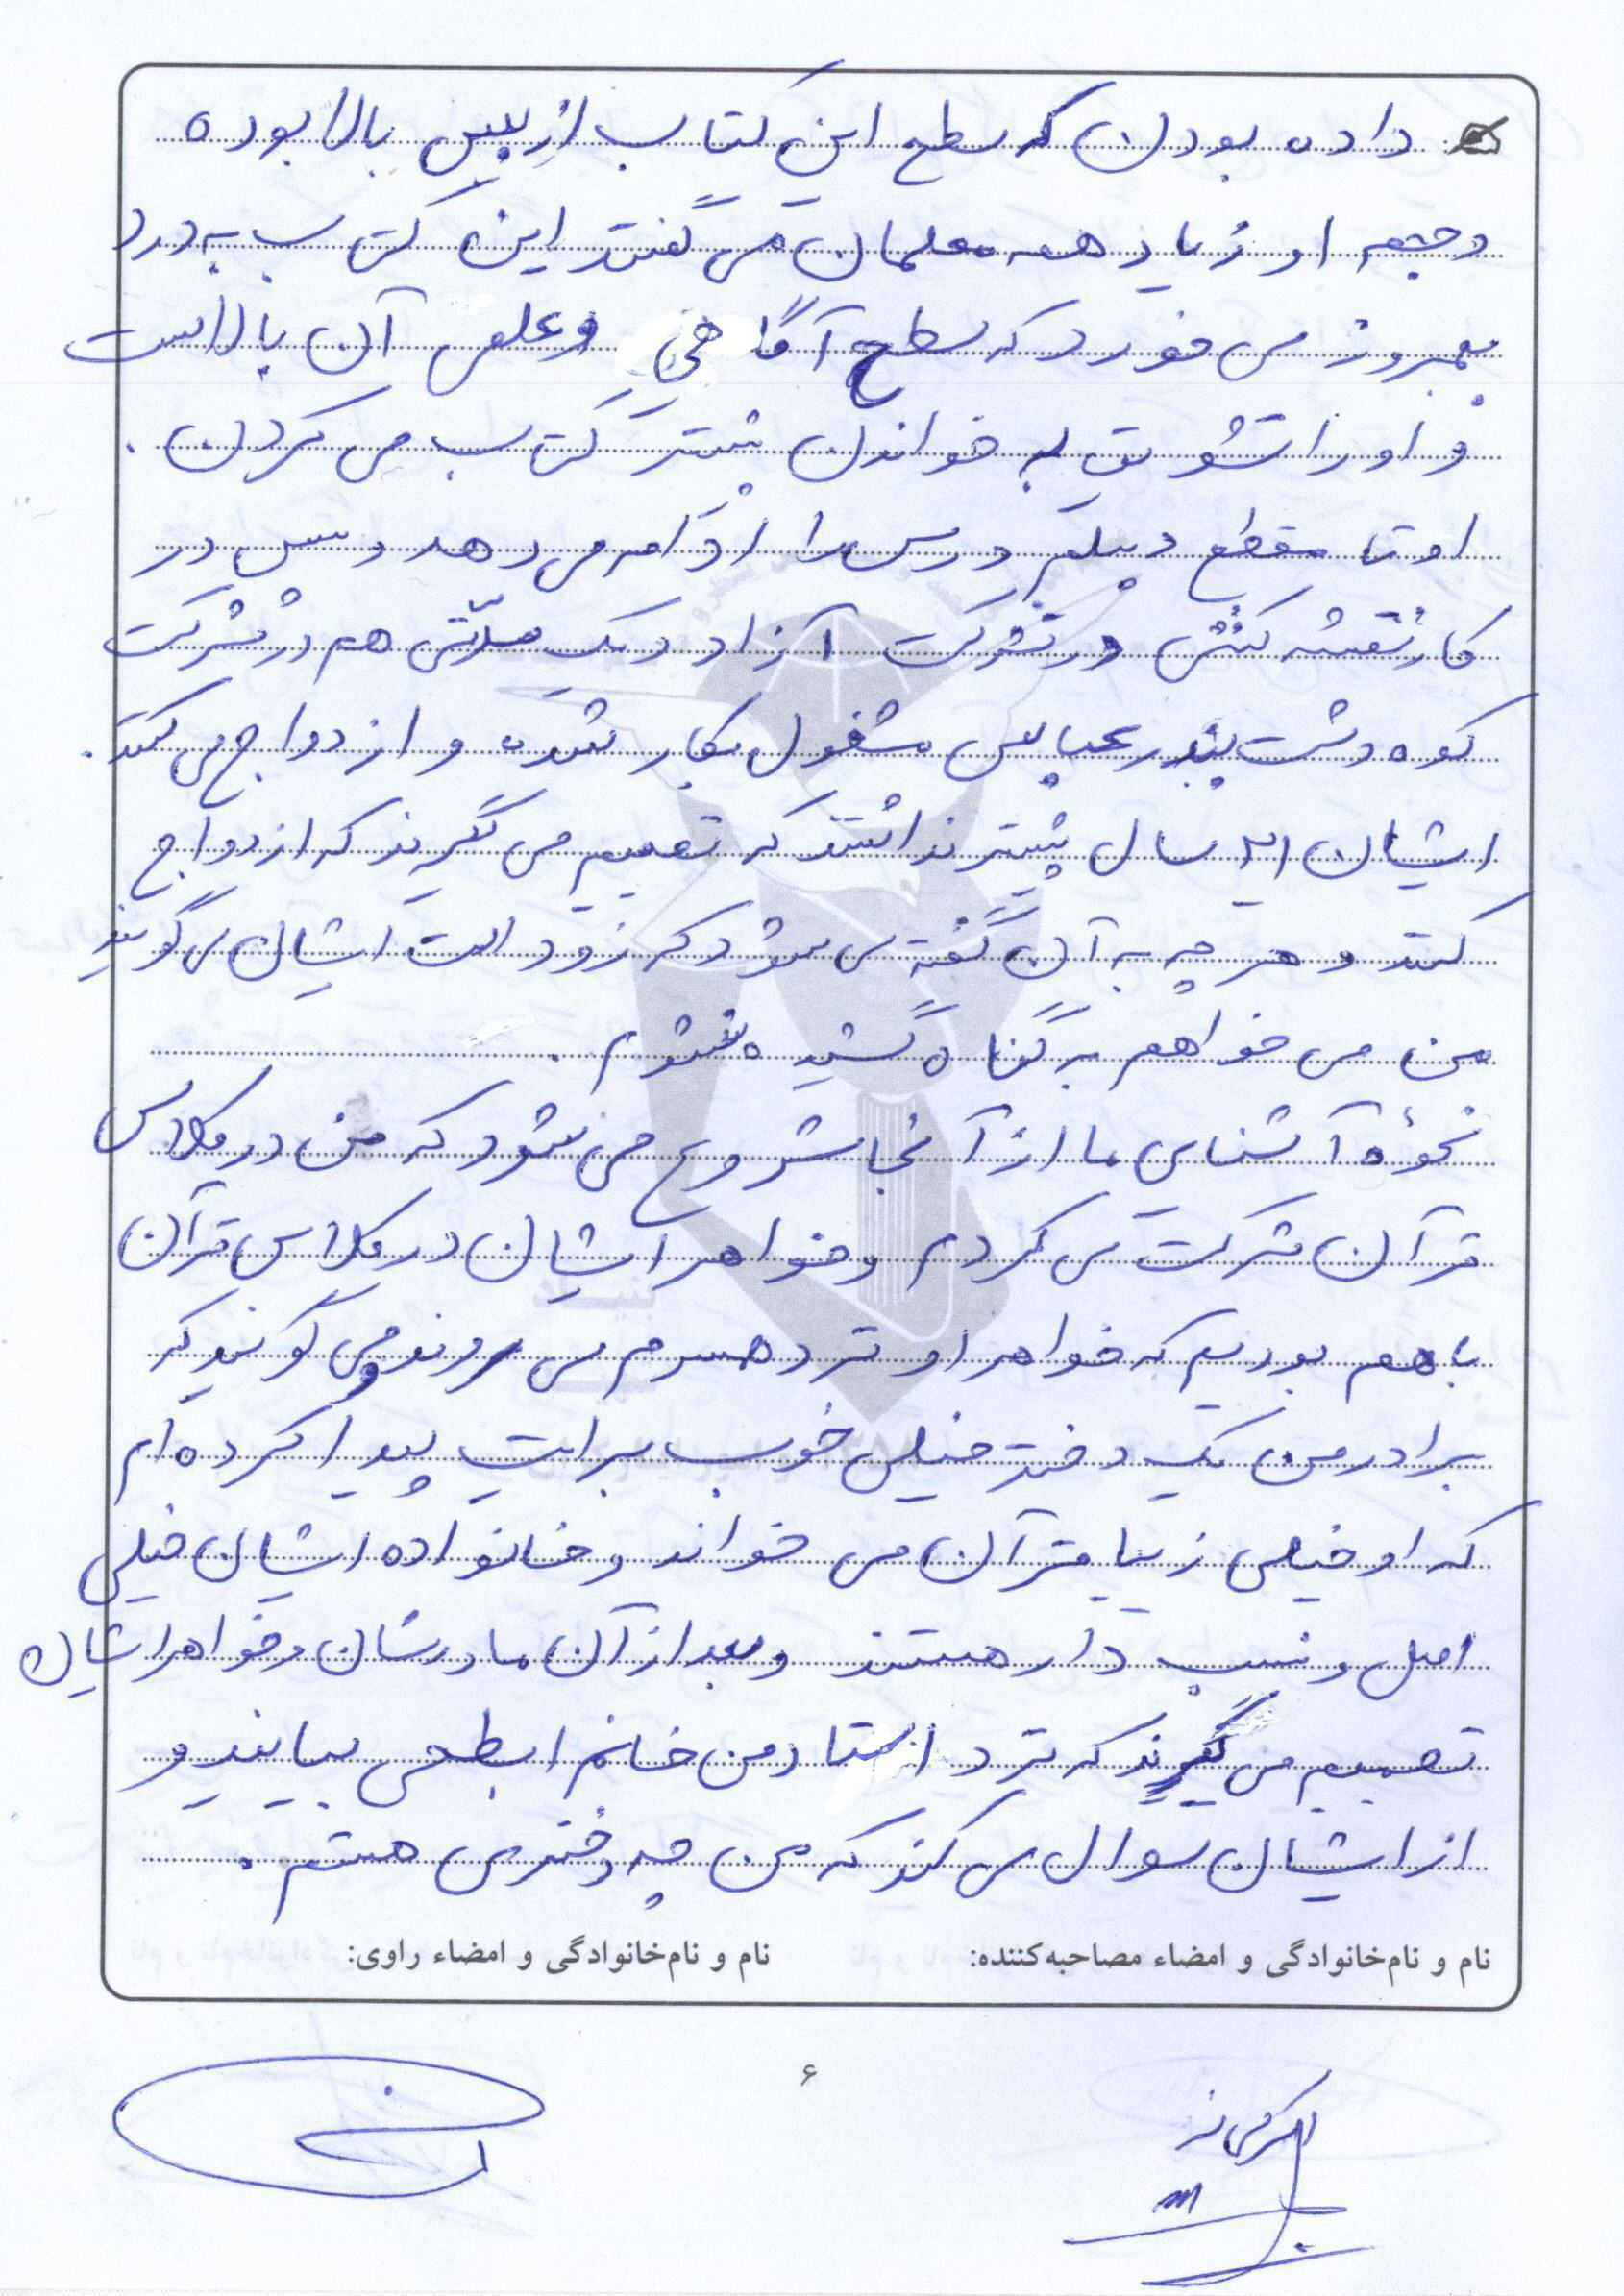 داده بودن که سطح این کتاب از بس بالا بوده
و حجم او زیاد همه معلمان می گفتند این کتاب به درد
بهروز می خورد که سطح آگاهی و علمی آن بالاست
و او را تشویق به خواندن بیشتر کتاب می کردن .
او تا مقطع دیپلم درس را ادامه می دهد و سپس در
کار نقشه کشی در شرکت آزاد و یک مدتی هم در شرکت
کوه دشت بندرعباس مشغول بکار شده و ازدواج می کنند .
ایشان ۲۱ سال بیشتر نداشتند که تصمیم می گیرند که ازدواج
کنند و هر چه به آن گفته می شود که زود است ایشان می گویند
من می خواهم به گناه کشیده نشوم .
نحوۀ آشنایی ما از آنجا شروع می شود که من در کلاس
قرآن شرکت می کردم و خواهر ایشان در کلاس قرآن
با هم بودیم که خواهر او نزد همسرم می روند و می گویند که
برادر من یک دختر خیلی خوب برایت پیدا کرده ام
که او خیلی زیبا قرآن می خواند و خانواده ایشان خیلی
اصل و نسب دار هستند و بعد از آن مادرشان و خواهر ایشان
تصمیم می گیرند که نزد استاد من خانم ابطحی بیایند و
از ایشان سوال می کند که من چه دختری هستم .
نام و نام‌خانوادگی و امضاء مصاحبه‌کننده: نام و نام‌خانوادگی و امضاء راوی:
۶